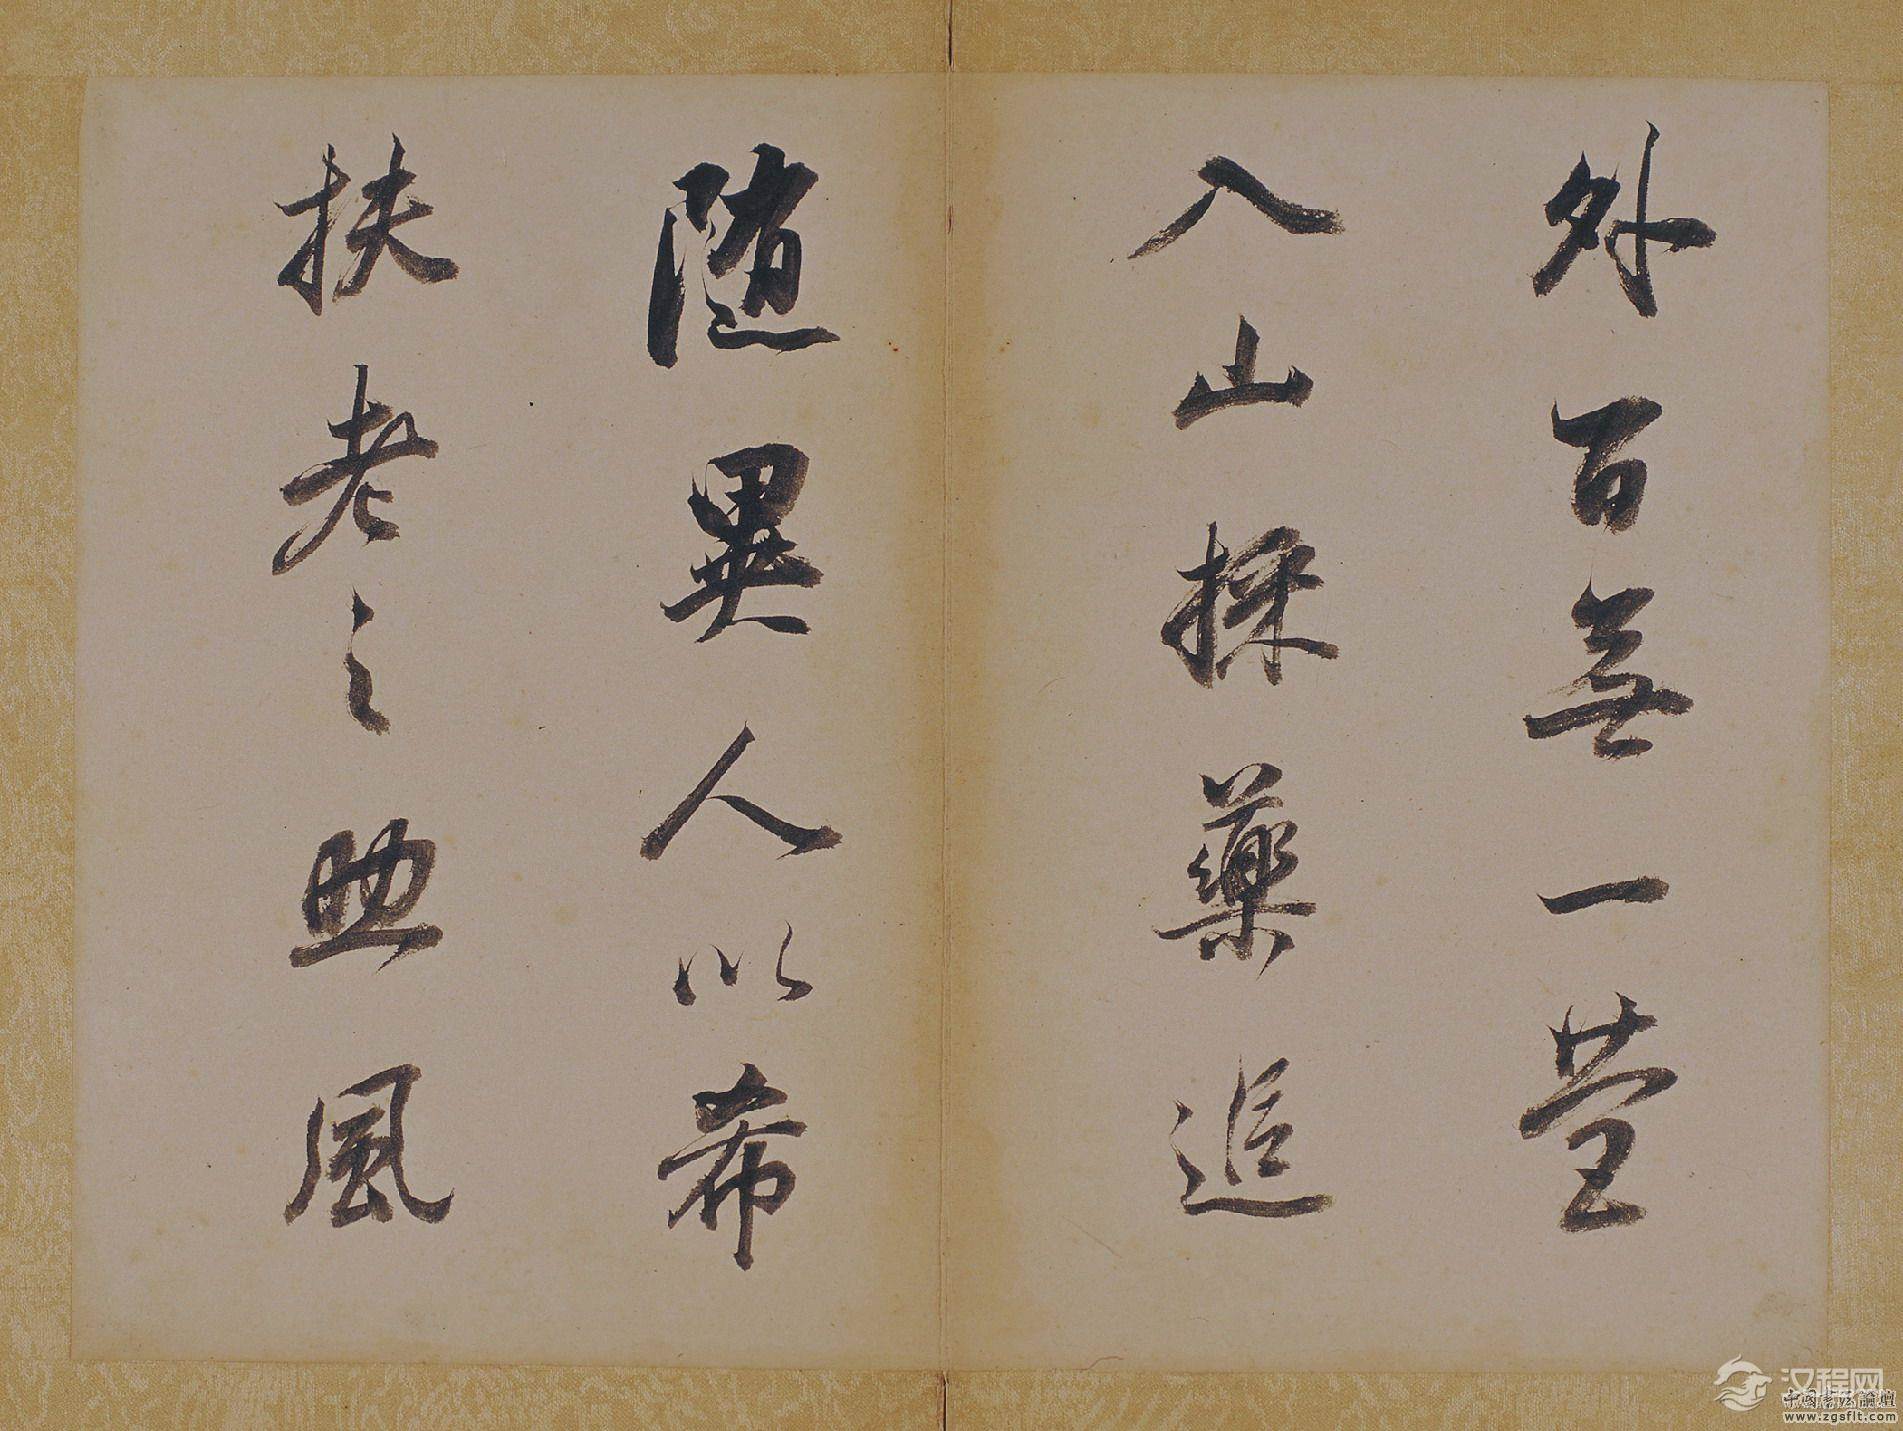 外百無一營
入山採藥追
隨異人以希
扶老之助風
汉程网
中国書法論壇
www.zgsflt.com